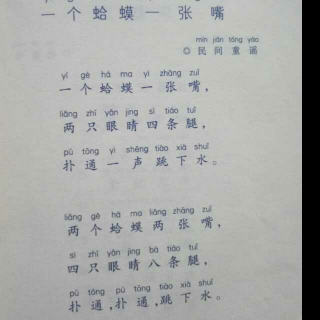 一个蛤蟆一张嘴
mín jiān tóng yáo
◎民间童谣
yí gè há ma yì zhāng zuǐ
一个蛤蟆一张嘴,
liǎng zhī yǎn jing sì tiáo tuǐ
两只眼睛四条腿,
pū tōng yì shēng tiào xià shuǐ
扑通一声跳下水。
liǎng gè há ma liǎng zhāng zuǐ
两个蛤蟆两张嘴,
sì zhī yǎn jing bā tiáo tuǐ
四只眼睛八条腿,
pū tōng pū tōng tiào xià shuǐ
扑通,扑通,跳下水。